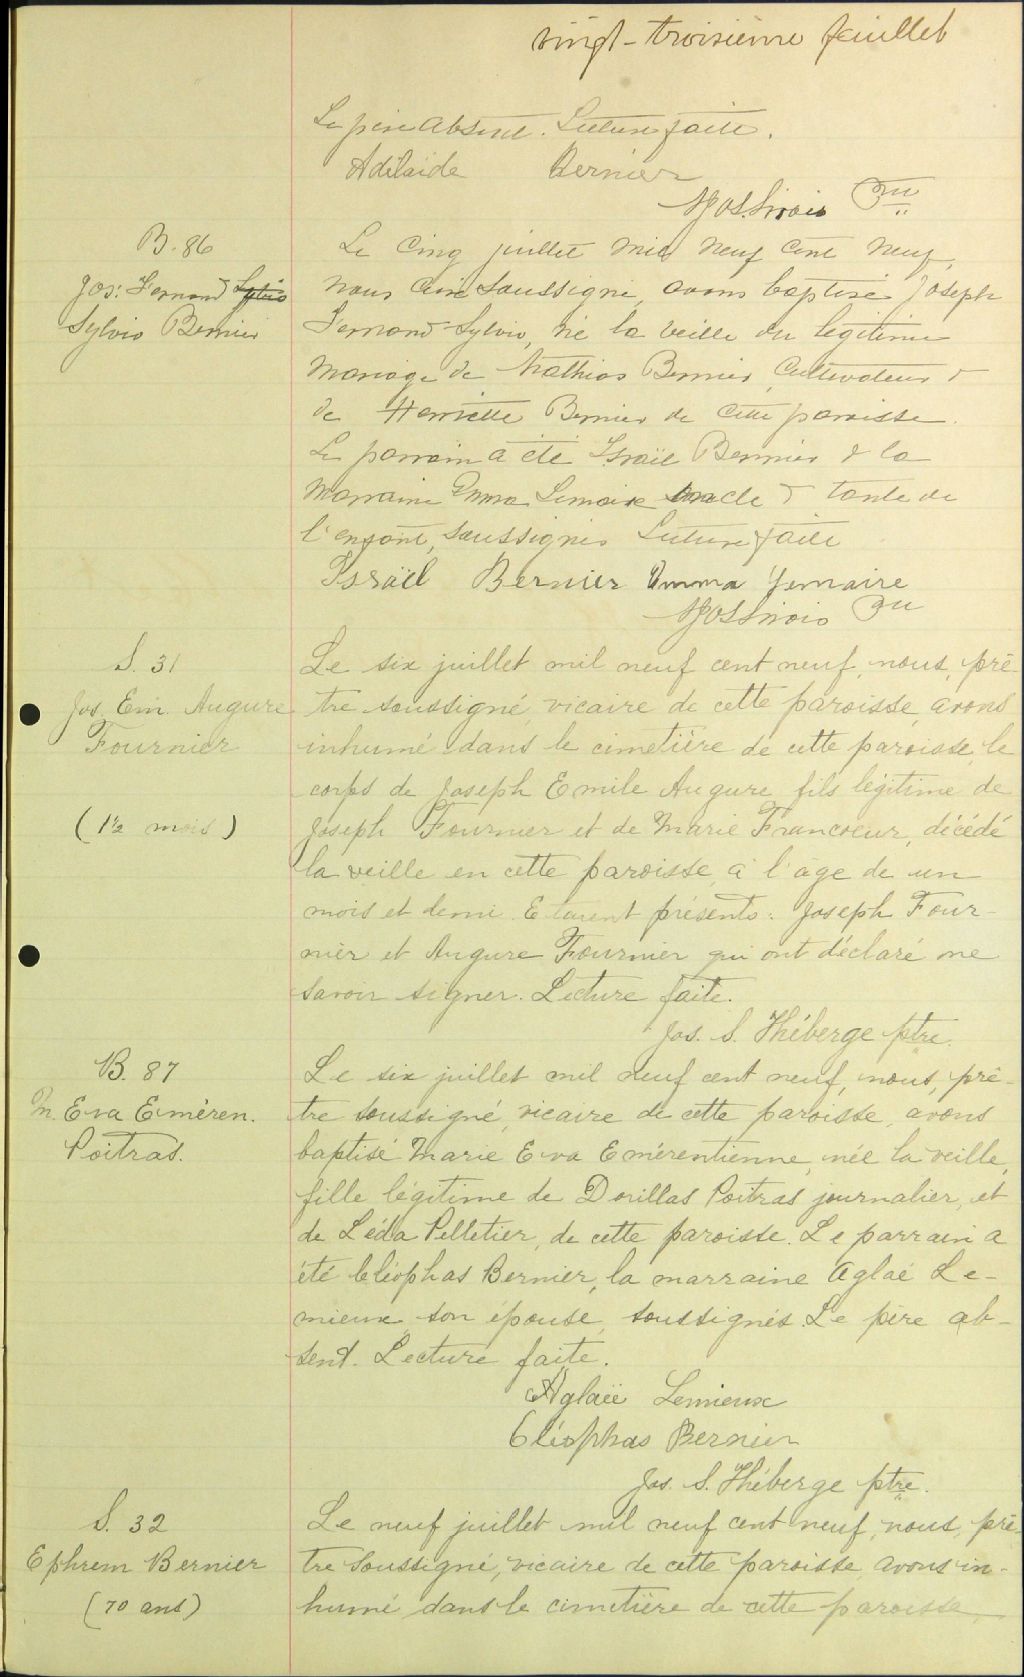 vingt-troisième feuillet
Le père absent. Lecture faite.
Adélaide Bernier
B. 86
Jos: Fernand
Sylvio Bernier
Le Cinq juillet mil neuf cent neuf,
nous Curé soussigné, avons baptisé Joseph
Fernand Sylvio, né la veille du légitime
mariage de Mathias Bernier, Cultivateur &
de Henriette Bernier de cette paroisse.
Le parrain a été Israël Bernier & la
marraine Emma Lemaire oncle & tante de
l'enfant, soussignés Lecture faite
Israël Bernier Emma Lemaire
S. 31
Jos. Em. Augure
Fournier
(1½ mois)
Le six juillet mil neuf cent neuf, nous, prê-
tre soussigné, vicaire de cette paroisse, avons
inhumé dans le cimetière de cette paroisse, le
corps de Joseph Emile Augure fils légitime de
Joseph Fournier et de Marie Francoeur, décédé
la veille en cette paroisse, à l'âge de un
mois et demi. Etaient présents: Joseph Four-
nier et Augure Fournier qui ont déclaré ne
savoir signer. Lecture faite.
Jos. S. Théberge ptre.
B. 87
M. Eva Eméren.
Poitras.
Le six juillet mil neuf cent neuf, nous, prê-
tre soussigné, vicaire de cette paroisse, avons
baptisé Marie Eva Emérentienne, née la veille,
fille légitime de Dorillas Poitras journalier, et
de Léda Pelletier, de cette paroisse. Le parrain a
été Cléophas Bernier, la marraine Aglaé Le-
mieux son épouse, soussignés. Le père ab-
sent. Lecture faite.
Aglaë Lemieux
Cléophas Bernier
Jos. S. Théberge ptre.
S. 32
Ephrem Bernier
(70 ans)
Le neuf juillet mil neuf cent neuf, nous, prê-
tre soussigné, vicaire de cette paroisse, avons in-
humé dans le cimetière de cette paroisse,